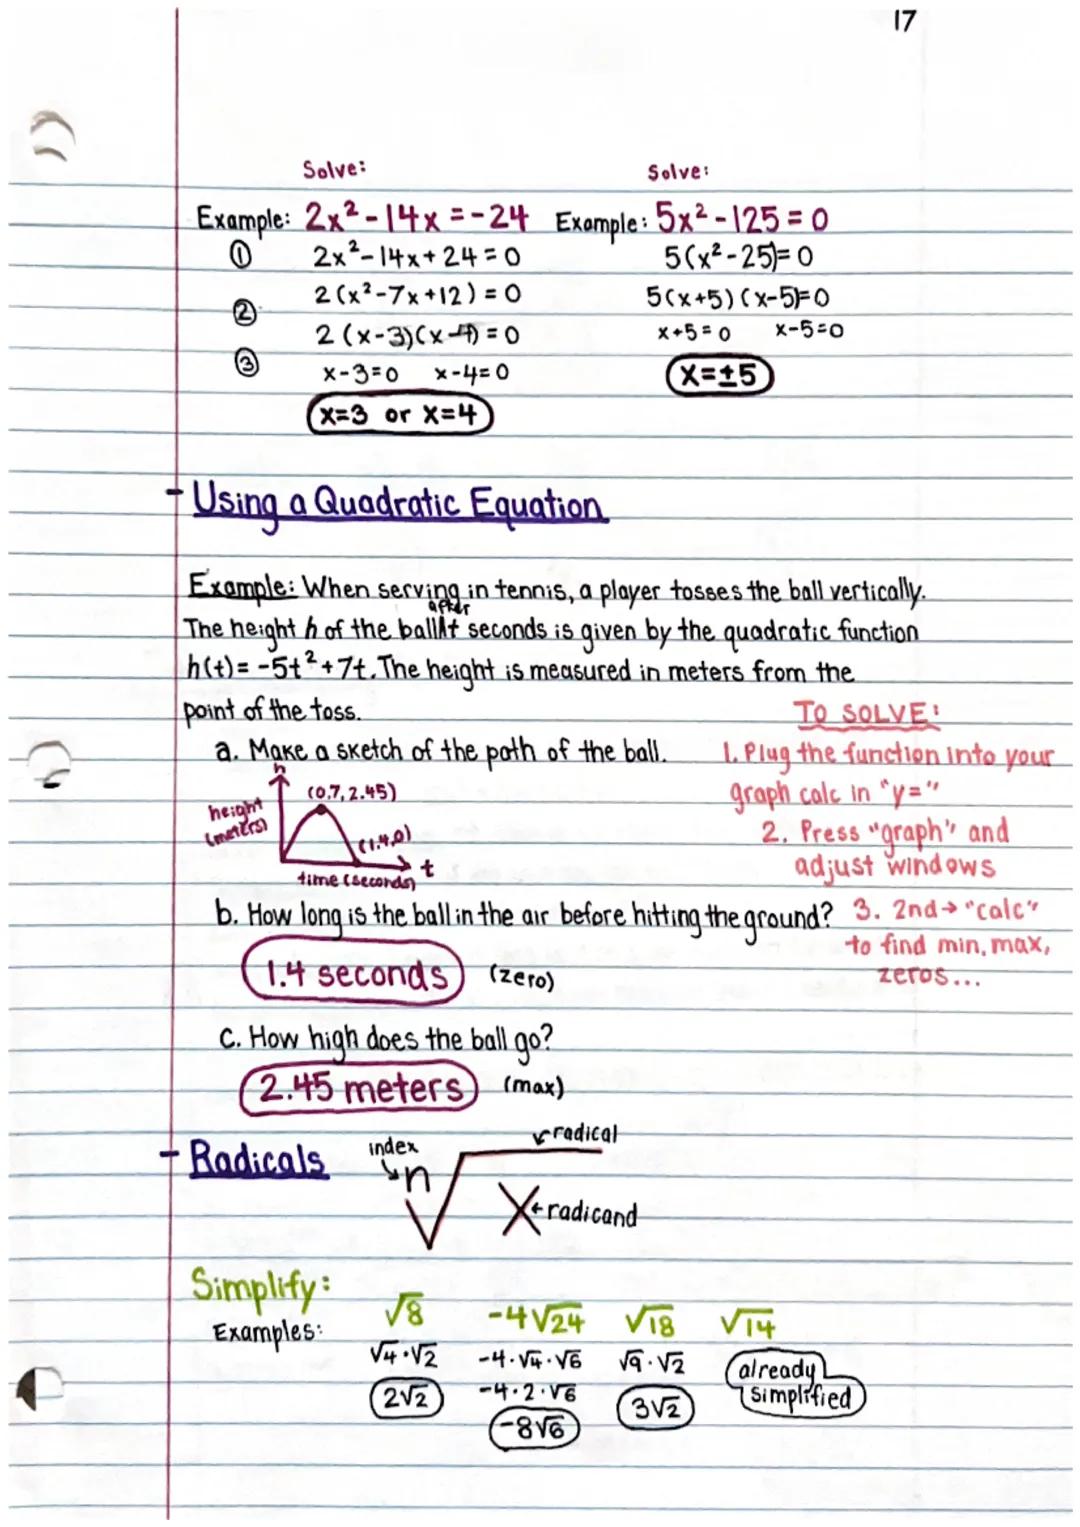 17
Solve:
Example: 2x² - 14x = -24
① 2x² - 14x + 24 = 0
2(x² - 7x + 12) = 0
② 2(x-3)(x-4) = 0
③ x-3=0 x-4=0
x=3 or x=4
Solve:
Example: 5x² - 125 = 0
5(x² - 25) = 0
5(x+5)(x-5)=0
x+5=0 x-5=0
x=±5
- Using a Quadratic Equation
Example: When serving in tennis, a player tosses the ball vertically.
The height h of the ball after t seconds is given by the quadratic function
h(t) = -5t² + 7t. The height is measured in meters from the
point of the toss.
a. Make a sketch of the path of the ball.
h
height
(meters)
(0.7, 2.45)
(1.4, 0)
t
time (seconds)
TO SOLVE:
1. Plug the function into your
graph calc in "y="
2. Press "graph" and
adjust windows
3. 2nd → "calc"
to find min, max,
zeros...
b. How long is the ball in the air before hitting the ground?
1.4 seconds (zero)
c. How high does the ball go?
2.45 meters (max)
- Radicals
index
n
radical
X ← radicand
Simplify:
Examples:
√8
√4 · √2
2√2
-4√24
-4 · √4 · √6
-4 · 2 · √6
-8√6
√18
√9 · √2
3√2
√14
already
simplified